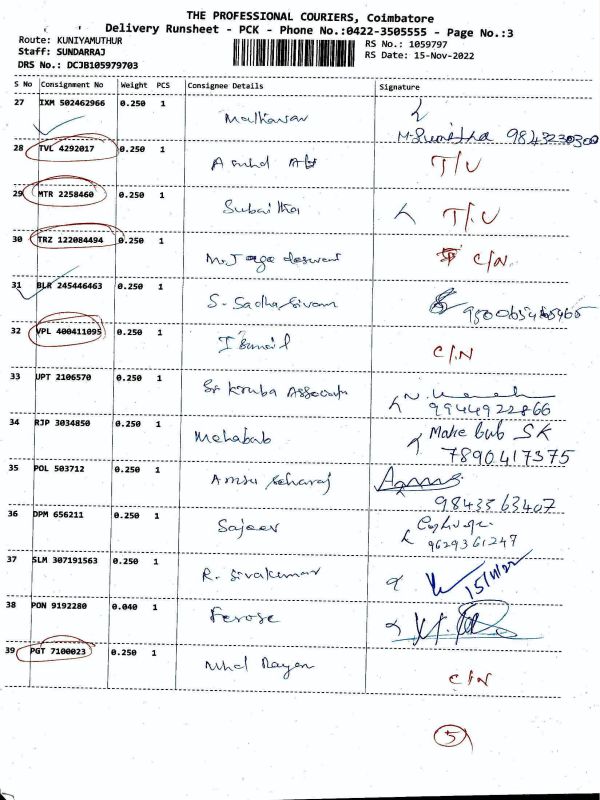 THE PROFESSIONAL COURIERS, Coimbatore
Delivery Runsheet - PCK - Phone No.:0422-3505555 - Page No.:3
Route: KUNIYAMUTHUR
Staff: SUNDARRAJ
DRS No.: DCJB105979703
RS No.: 1059797
RS Date: 15-Nov-2022
S No Consignment No Weight PCS Consignee Details Signature
27 IXM 502462966 0.250 1 Madhavan
9843230300
28 TVL 4292017 0.250 1 T/U
29 MTR 2258460 0.250 1 Subaitha T/U
30 TRZ 122084494 0.250 1 C/N
31 BLR 245446463 0.250 1 S. Sadhasivam
32 VPL 400411095 0.250 1 Ismail C/N
33 UPT 2106570 0.250 1 Sri Kiruba Associats
9944922866
34 RJP 3034850 0.250 1 Mehabab Make bub SK
7890417375
35 POL 503712 0.250 1
9843563407
36 DPM 656211 0.250 1 Sajeev
9629361247
37 SLM 307191563 0.250 1 R. Sivakumar 15/11/22
38 PON 9192280 0.040 1 Ferose
39 PGT 7100023 0.250 1 Mhd Rayan C/N
5